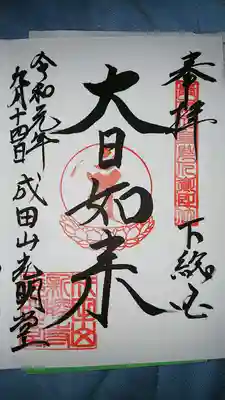 奉拝
下総国
大日如来
成田山光明堂
令和元年
九月十四日